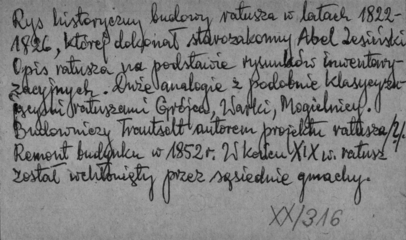 Rys historyczny budowy ratusza w latach 1822-
1826, której dokonał starozakonny Abel Lesiński
Opis ratusza na podstawie rysunków inwentary-
zacyjnych. Dwie analogie z podobnie klasycysty-
cznymi ratuszami Grójca, Warki, Mogielnicy.
Budowniczy Trautsolt autorem projektu ratusza/?/.
Remont budynku w 1852 r. W końcu XIX w. ratusz
został wchłonięty przez sąsiednie gmachy.
XX/316